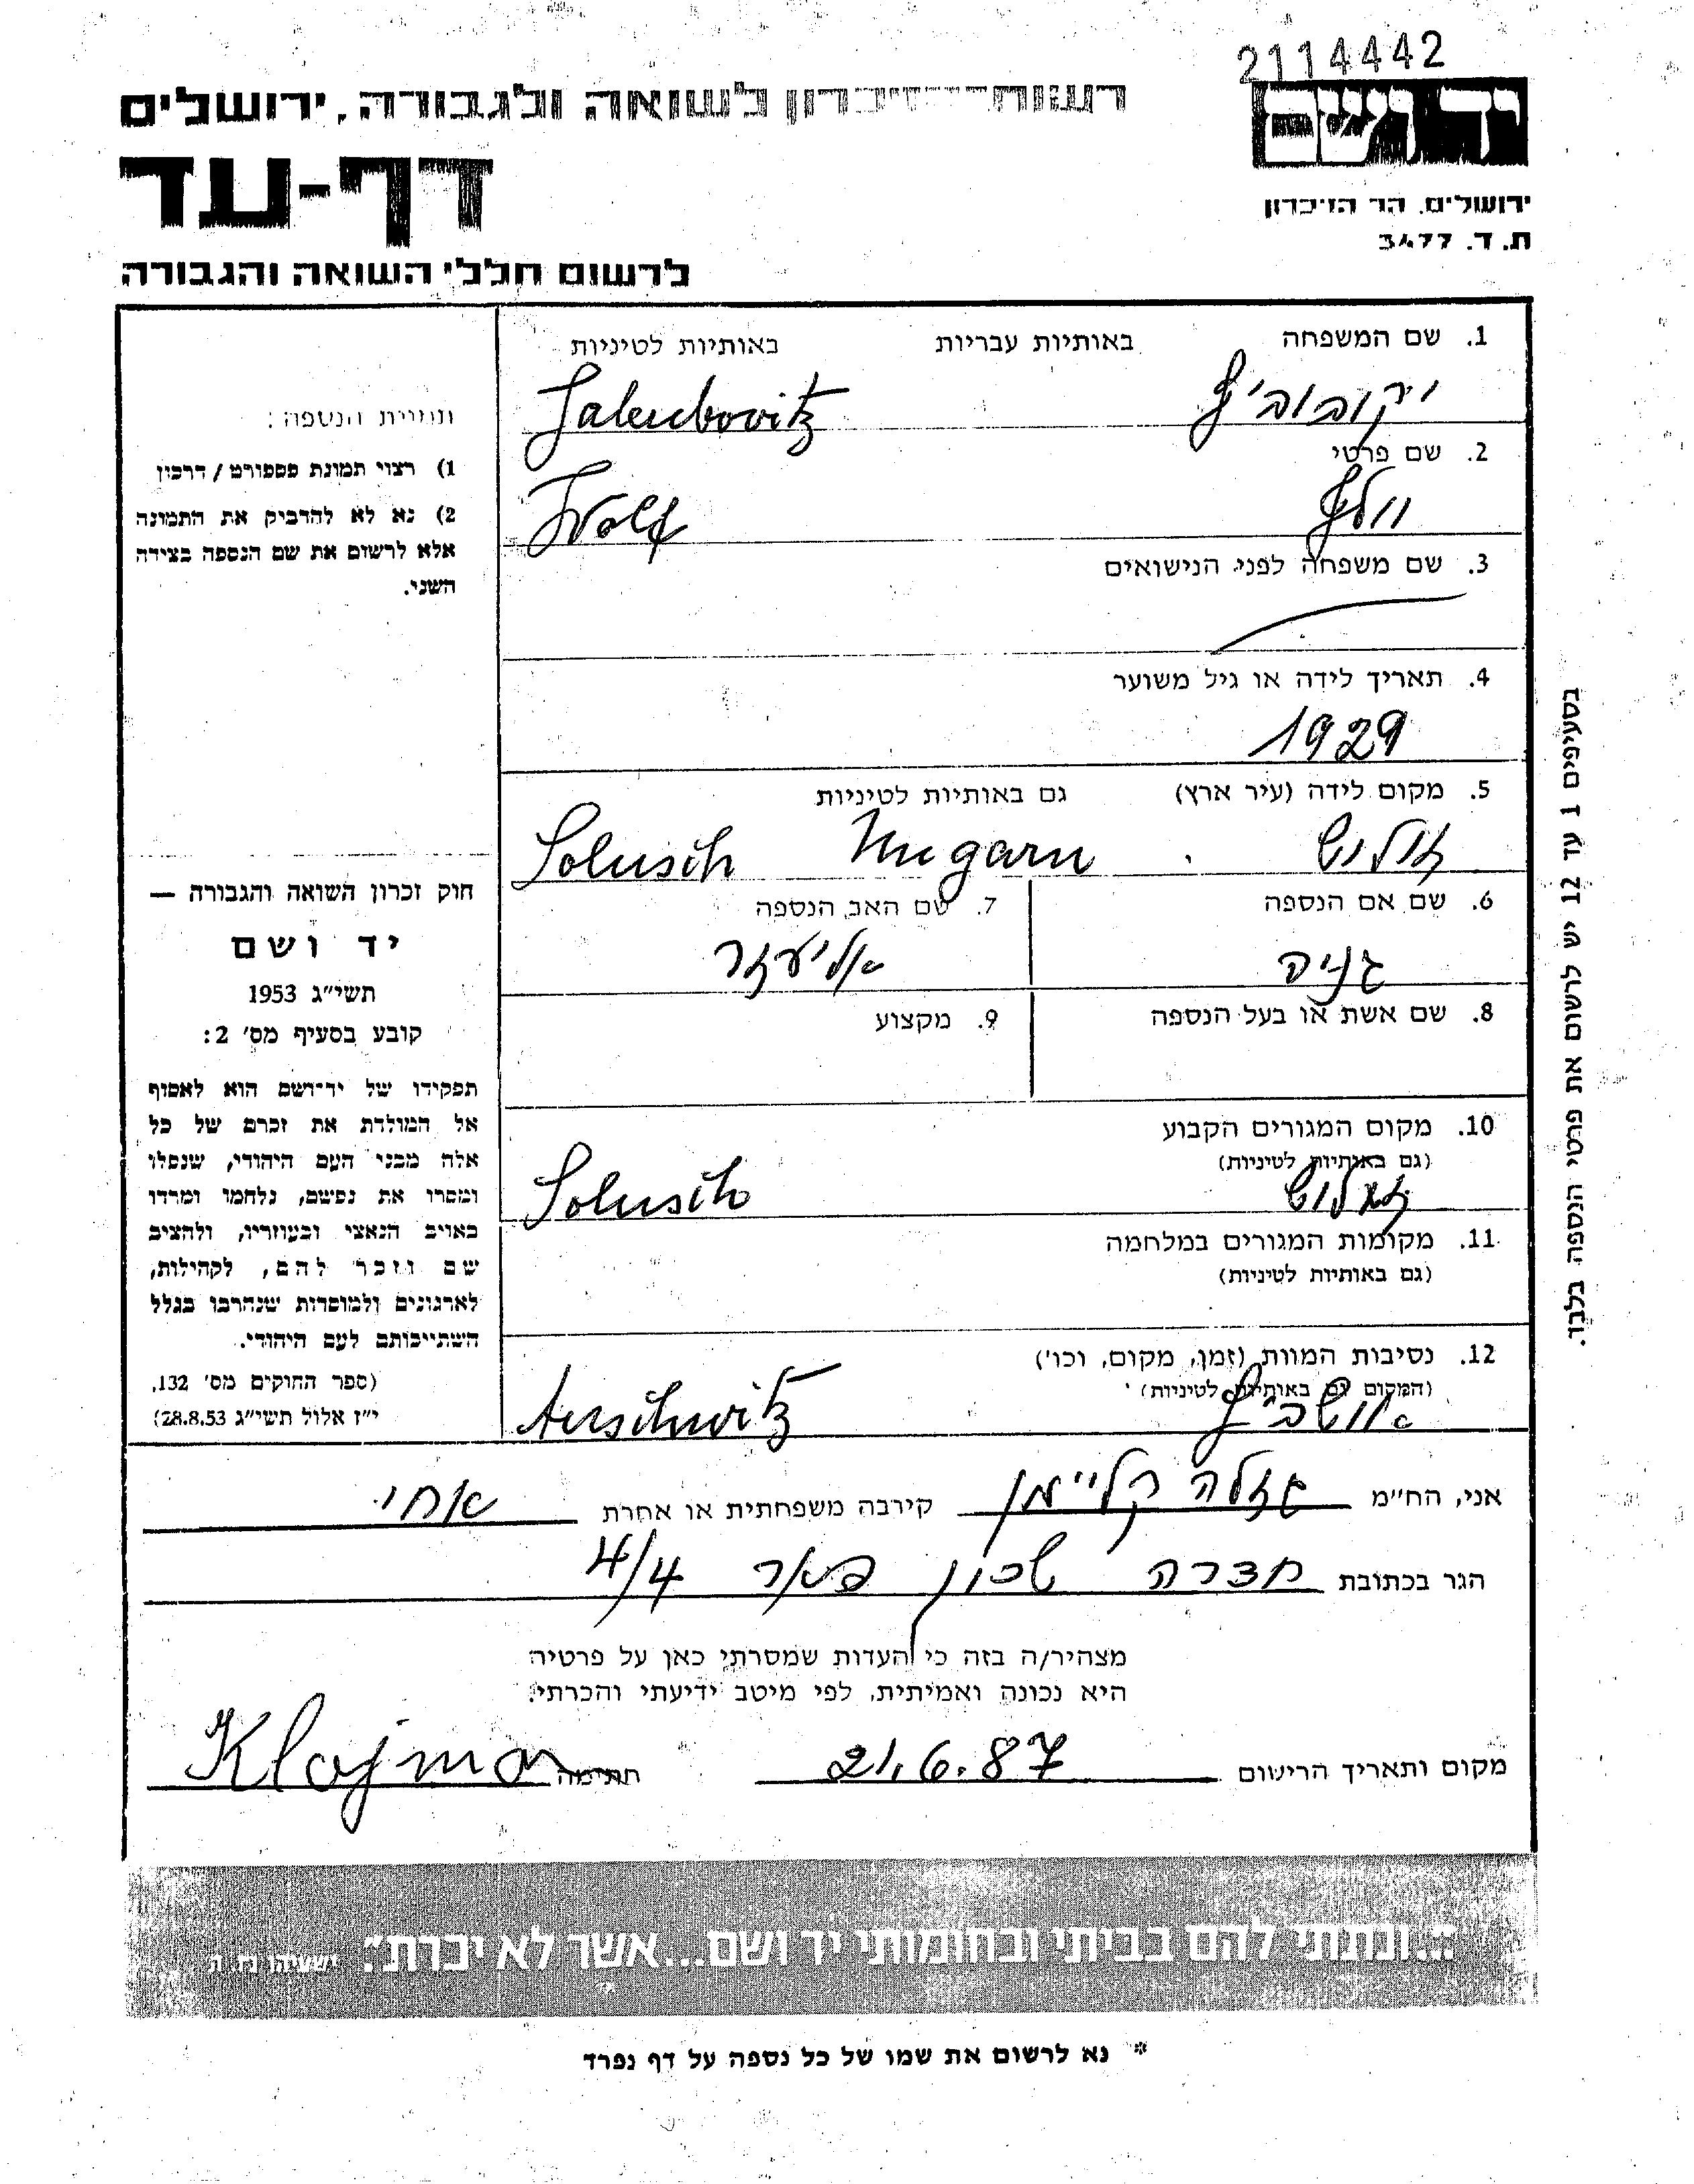 2114442
רשות הזיכרון לשואה ולגבורה, ירושלים
יד ושם
דף-עד
ירושלים, הר הזיכרון
ת. ד. 3477
לרשום חללי השואה והגבורה
1. שם המשפחה באותיות עבריות באותיות לטיניות
יקובוביץ Jakubovitz
2. שם פרטי
וולף Wolf
3. שם משפחה לפני הנישואים
4. תאריך לידה או גיל משוער
1929
5. מקום לידה (עיר ארץ) גם באותיות לטיניות
זולוש Solusch Ungarn
6. שם אם הנספה 7. שם האב הנספה
גניה אליעזר
8. שם אשת או בעל הנספה 9. מקצוע
10. מקום המגורים הקבוע
(גם באותיות לטיניות)
זולוש Solusch
11. מקומות המגורים במלחמה
(גם באותיות לטיניות)
12. נסיבות המוות (זמן, מקום, וכו')
(המקום גם באותיות לטיניות)
אושביץ Auschwitz
תמונת הנספה:
1) רצוי תמונת פספורט / דרכון
2) נא לא להדביק את התמונה
אלא לרשום את שם הנספה בצידה
השני.
חוק זכרון השואה והגבורה —
יד ושם
תשי"ג 1953
קובע בסעיף מס' 2:
תפקידו של יד-ושם הוא לאסוף
אל המולדת את זכרם של כל
אלה מבני העם היהודי, שנפלו
ומסרו את נפשם, נלחמו ומרדו
באויב הנאצי ובעוזריו, ולהציב
שם וזכר להם, לקהילות,
לארגונים ולמוסדות שנהרבו בגלל
השתייכותם לעם היהודי.
(ספר החוקים מס' 132,
י"ז אלול תשי"ג 28.8.53)
בסעיפים 1 עד 12 יש לרשום את פרטי הניספה בלבד.
אני, הח"מ גזלה קליימן קירבה משפחתית או אחרת אחי
הגר בכתובת חדרה שכון פאר 4/4
מצהיר/ה בזה כי העדות שמסרתי כאן על פרטיה
היא נכונה ואמיתית, לפי מיטב ידיעתי והכרתי.
מקום ותאריך הרישום 21.6.87 חתימה Klajman
"...ונתתי להם בביתי ובחומותי יד ושם...אשר לא יכרת". ישעיהו נו, ה
* נא לרשום את שמו של כל נספה על דף נפרד